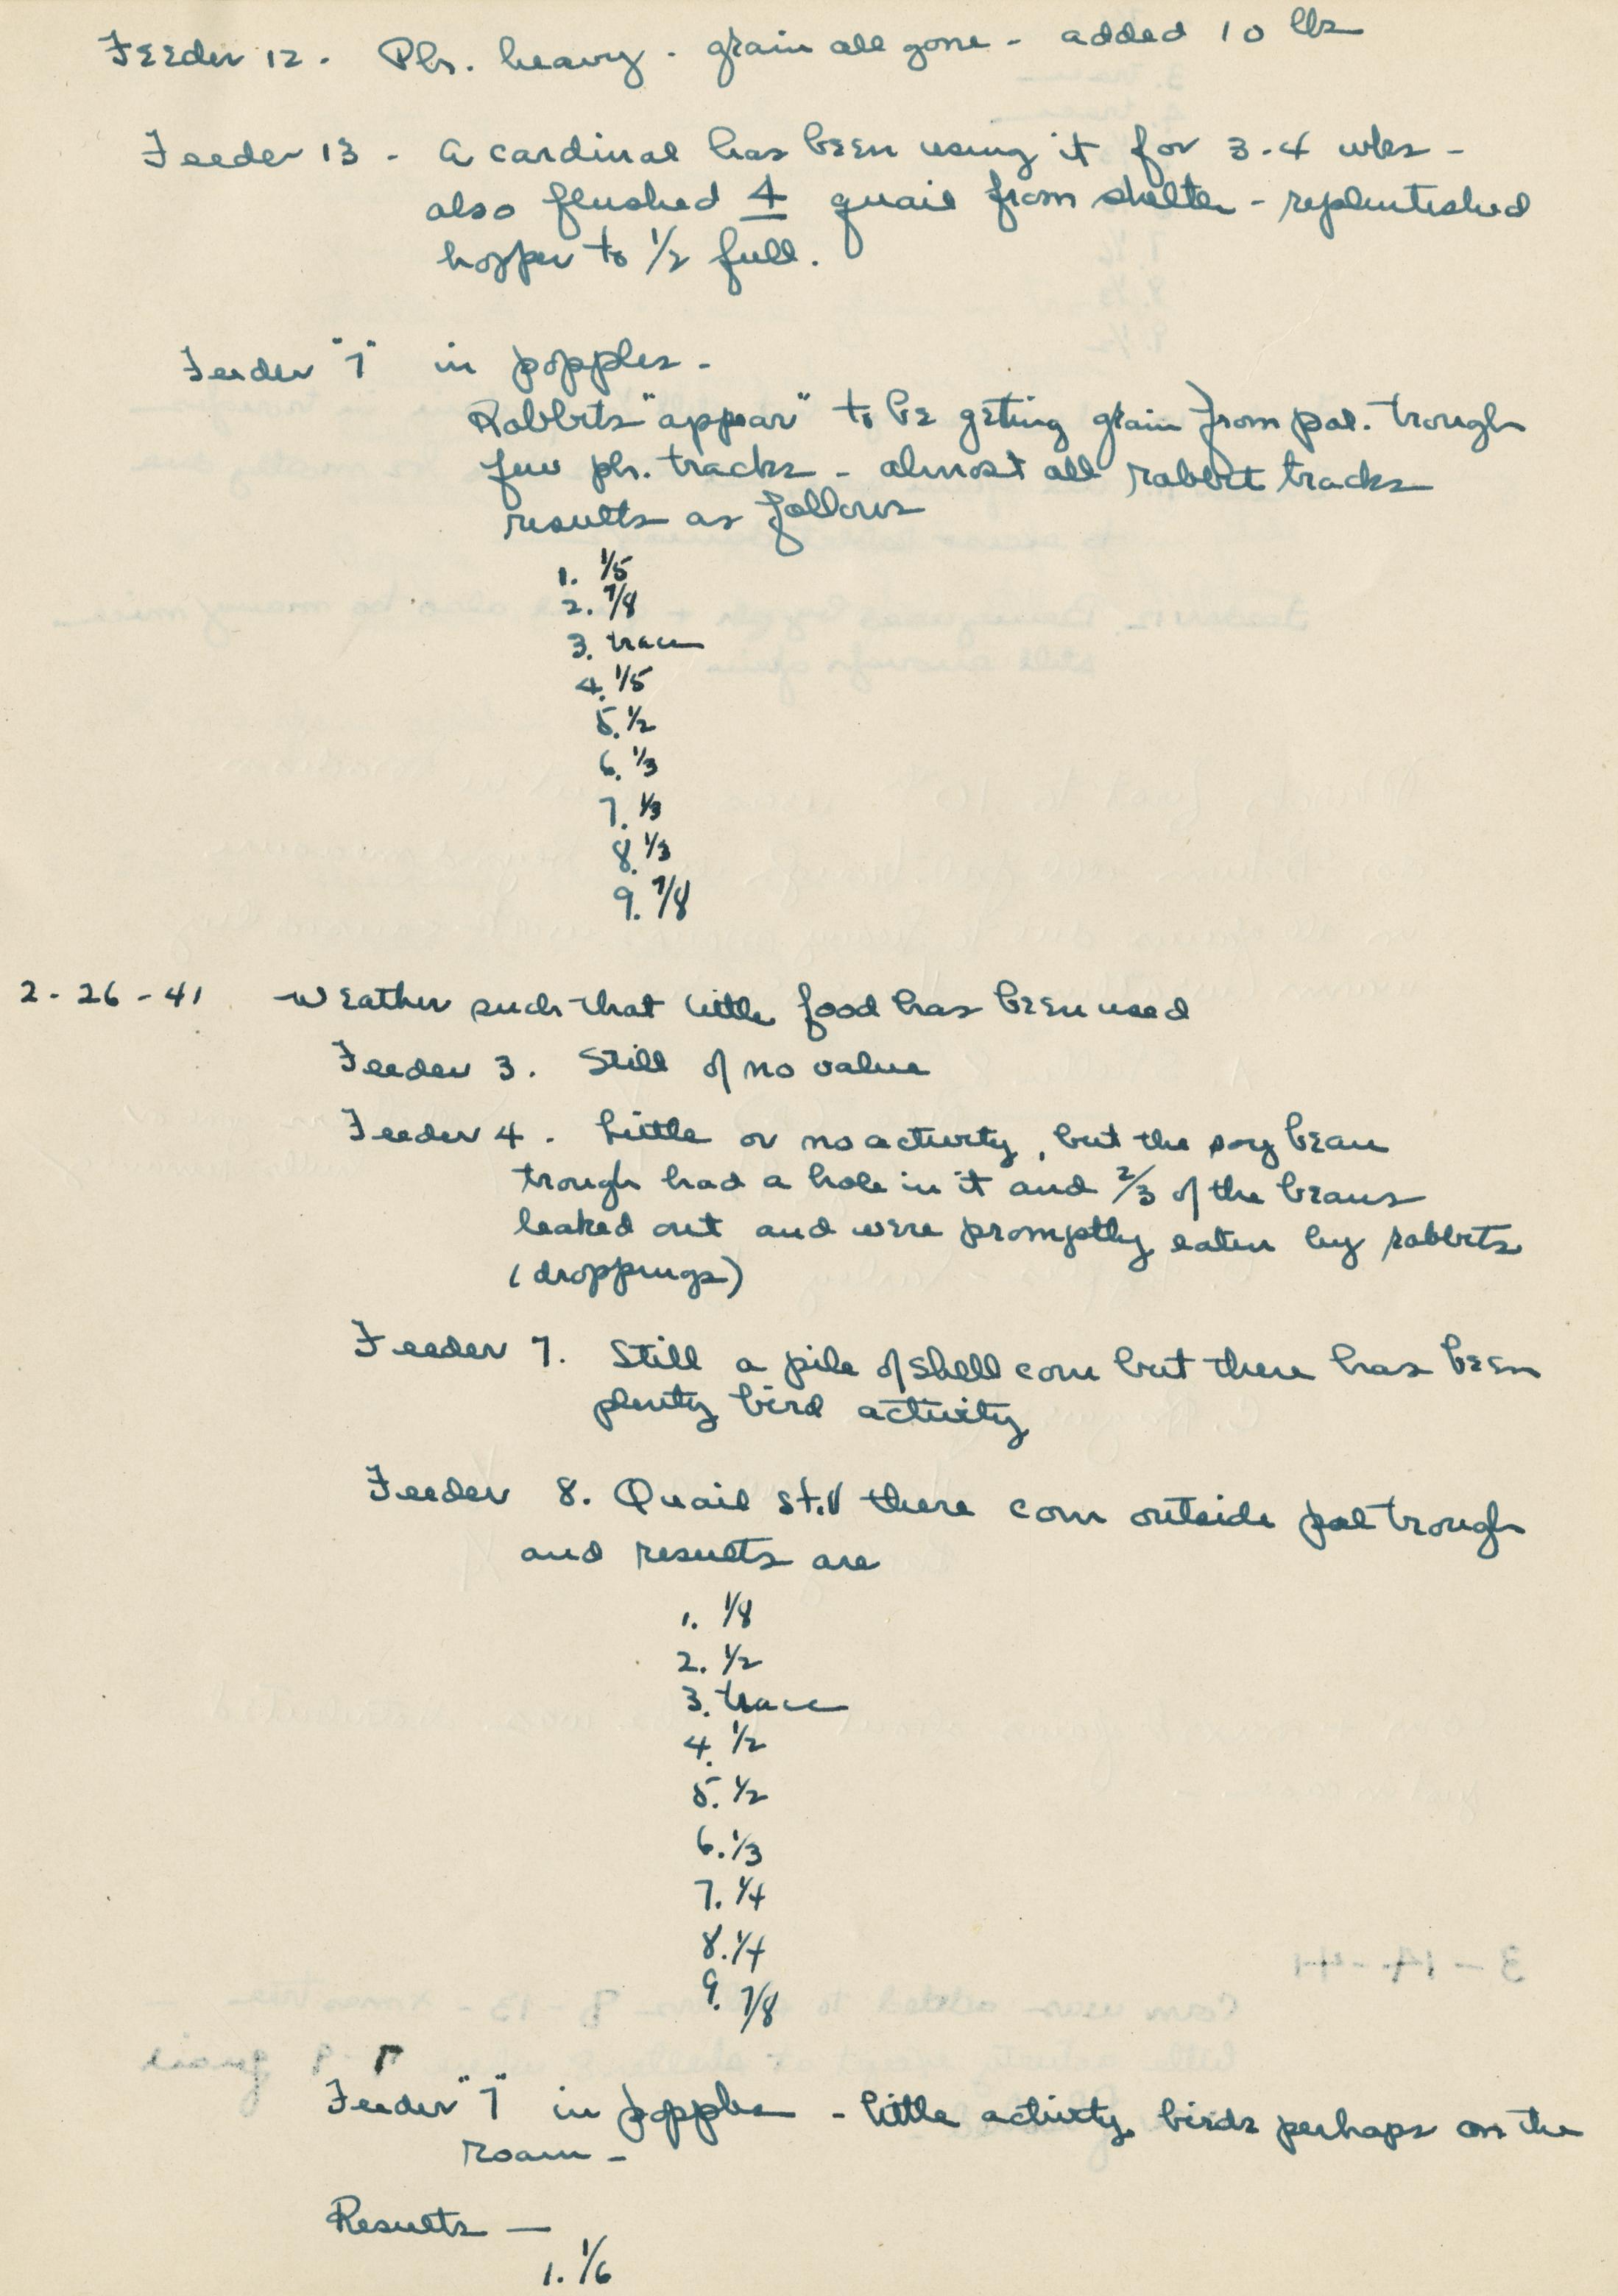 Feeder 12. Phs. heavy - grain all gone - added 10 lbs
Feeder 13 - A cardinal has been using it for 3-4 wks -
also flushed 4 quail from shelter - replentished
hopper to 1/2 full.
Feeder "7" in popples -
Rabbits "appear" to be geting grain from pal. trough
few ph. tracks - almost all rabbit tracks
results as follows
1. 1/5
2. 7/8
3. trace
4. 1/5
5. 1/2
6. 1/3
7. 1/3
8. 1/3
9. 7/8
2-26-41 Weather such that little food has been used
Feeder 3. Still of no value
Feeder 4. Little or no activity, but the soy bean
trough had a hole in it and 2/3 of the beans
leaked out and were promptly eaten by rabbits
(droppings)
Feeder 7. Still a pile of shell corn but there has been
plenty bird activity
Feeder 8. Quail still there corn outside pal trough
and results are
1. 1/8
2. 1/2
3. trace
4. 1/2
5. 1/2
6. 1/3
7. 1/4
8. 1/4
9. 7/8
Feeder "7" in popples - little activity, birds perhaps on the
roam -
Results —
1. 1/6